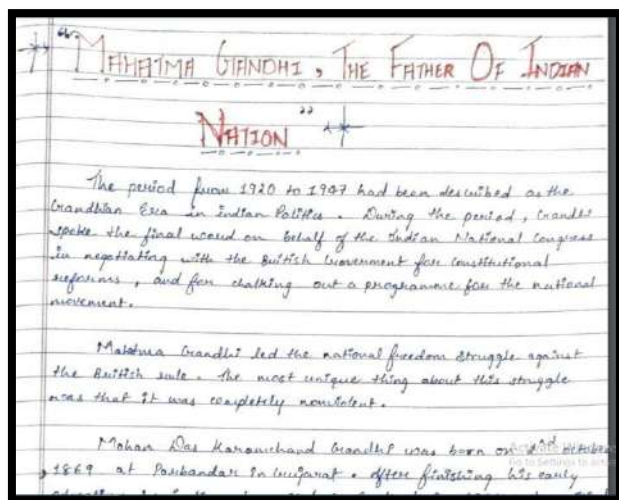 "MAHATMA GANDHI, THE FATHER OF INDIAN
NATION"
The period from 1920 to 1947 had been described as the
Gandhian Era in Indian Politics. During the period, Gandhi
spoke the final word on behalf of the Indian National Congress
in negotiating with the British Government for constitutional
reforms, and for chalking out a programme for the national
movement.
Mahatma Gandhi led the national freedom struggle against
the British rule. The most unique thing about this struggle
was that it was completely nonviolent.
Mohan Das Karamchand Gandhi was born on 2nd October
1869 at Porbandar in Gujarat. After finishing his early
Go to Settings to